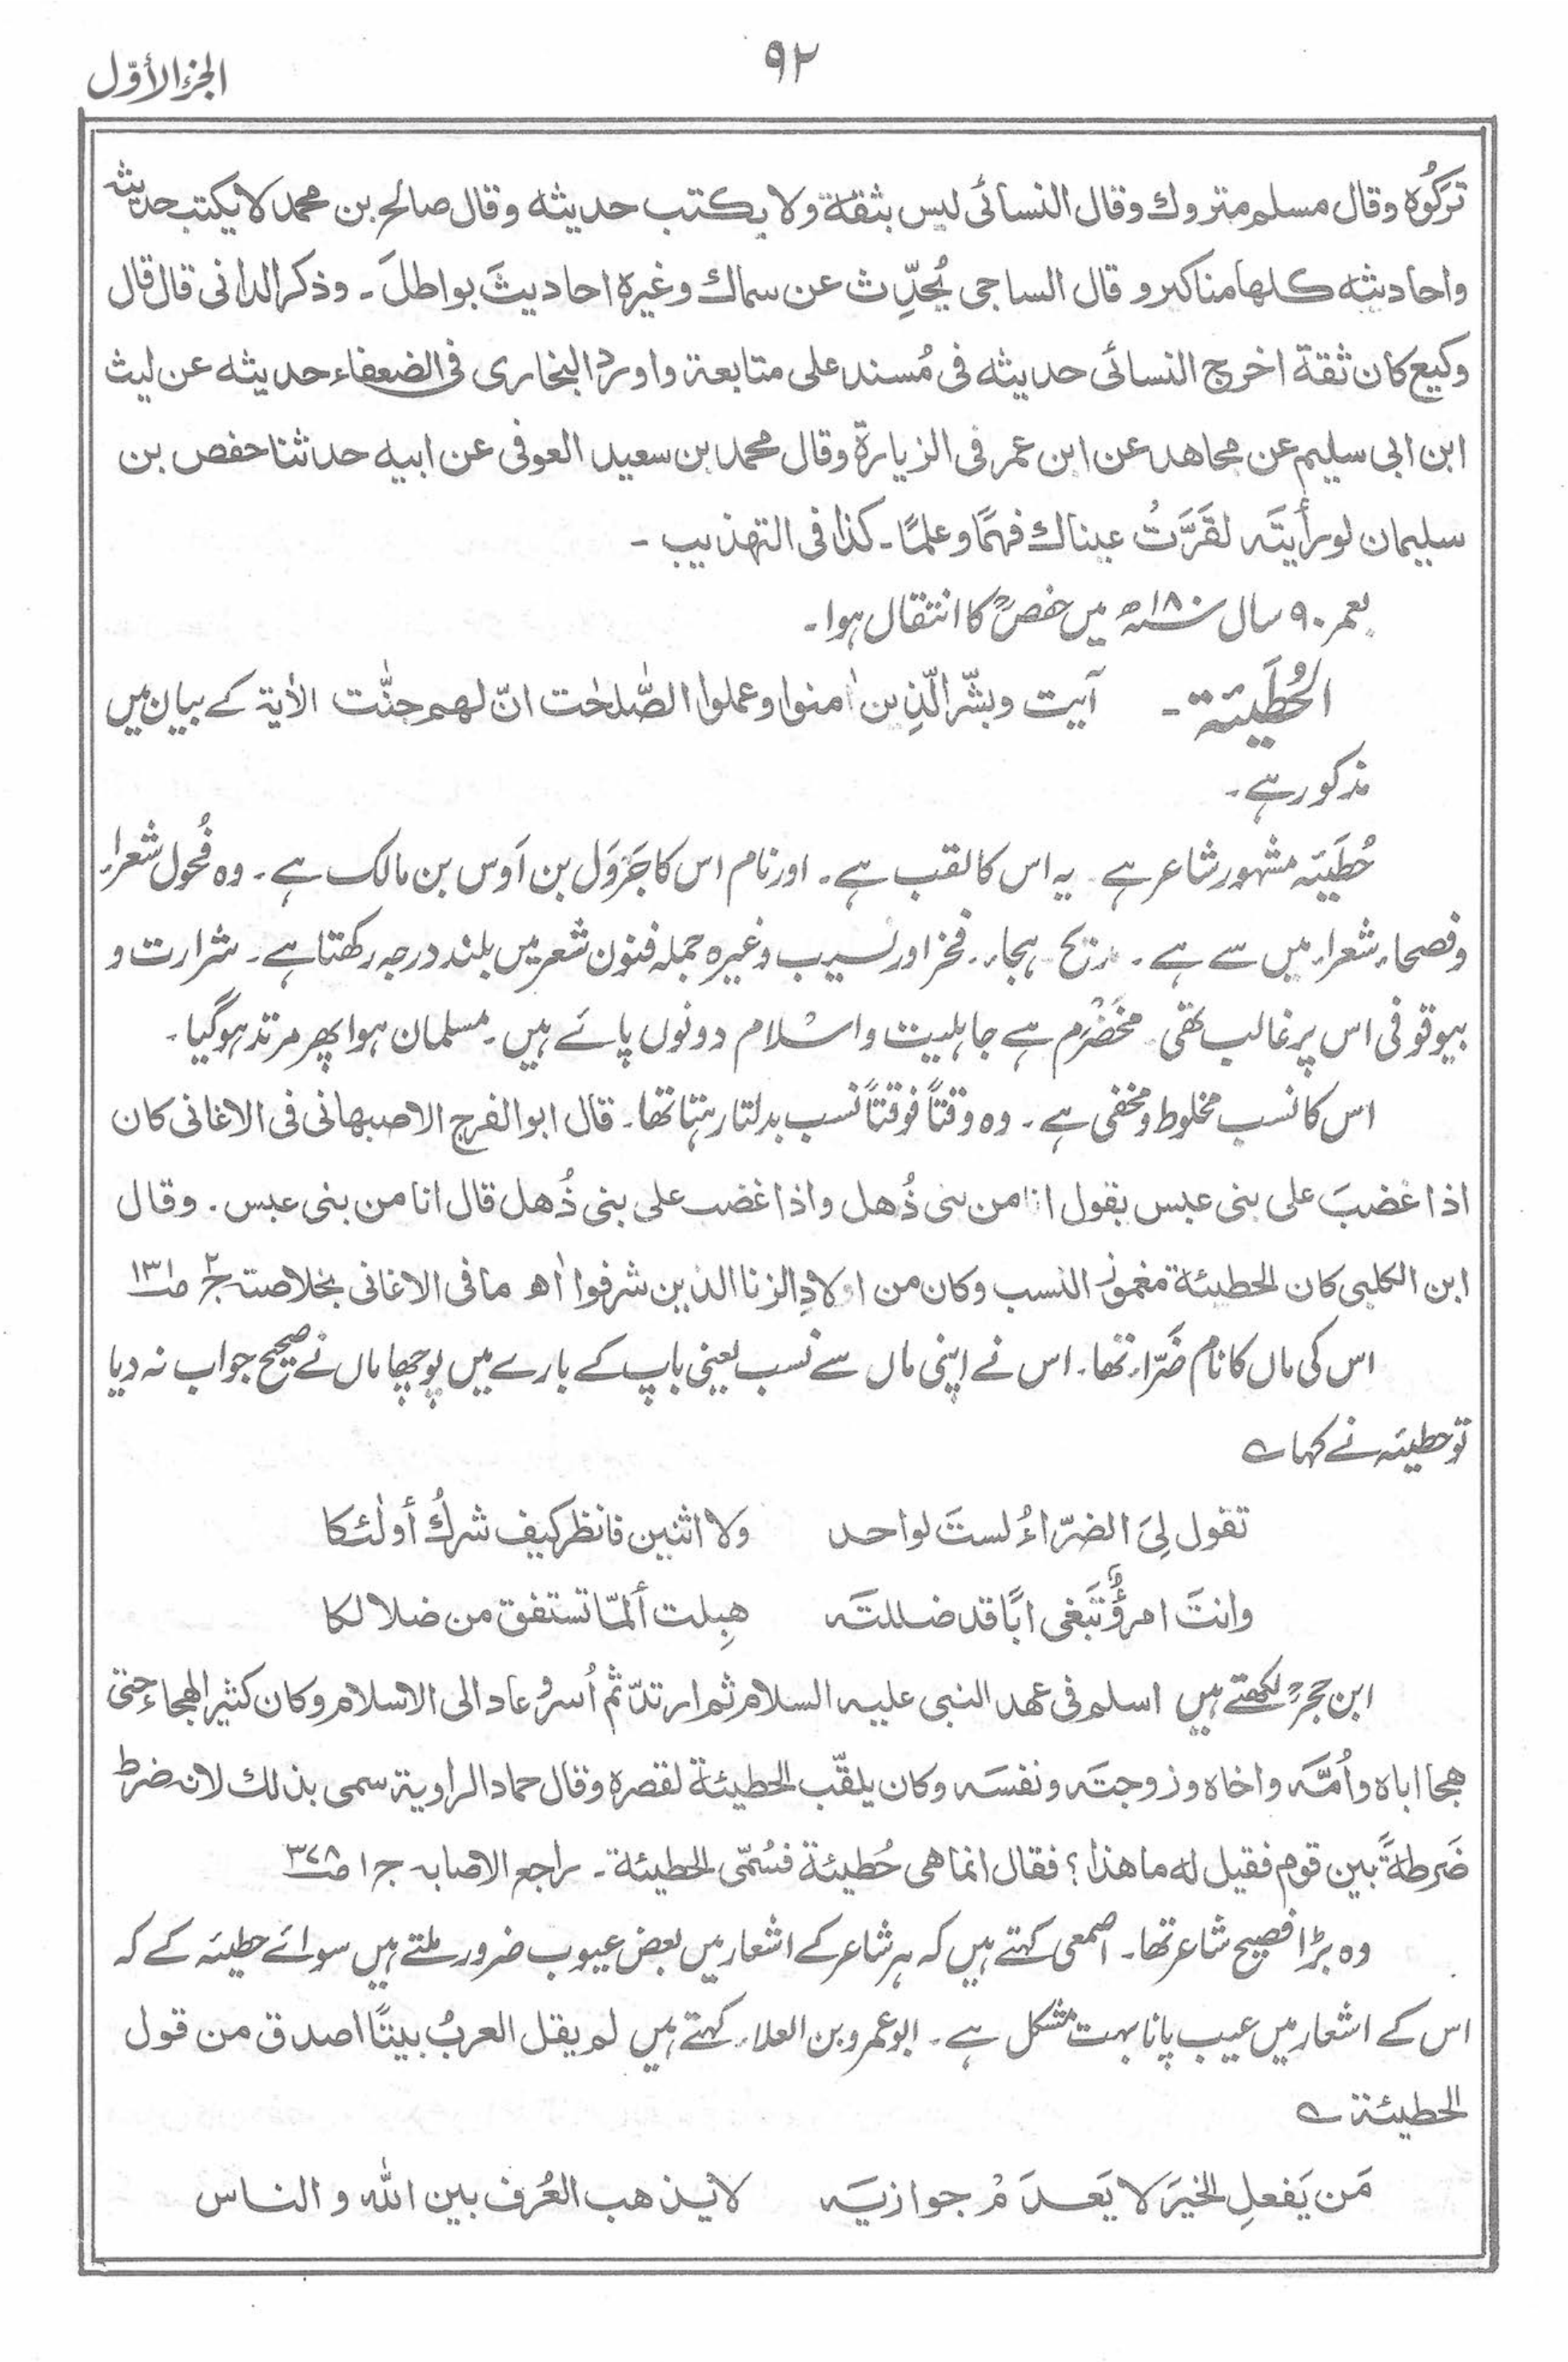 ٩٢
الجزء الأوّل
تَركوُه وقال مسلم متروك وقال النسائی ليس بثقة ولا يكتب حديثه وقال صالح بن محمد لا يكتب حديثه
واحاديثه كلها مناكير و قال الساجی يُحدِّث عن سماك وغيره احاديثَ بواطلَ ۔ وذكر الدانی قال قال
وكيع كان ثقة اخرج النسائی حديثه فی مُسند علی متابعة واورد البخاری فی الضعفاء حديثه عن ليث
ابن ابی سليم عن مجاهد عن ابن عمر فی الزيارة وقال محمد بن سعيد العوفی عن ابيه حدثنا حفص بن
سليمان لو رأيتَه لقَرَّتُ عيناك فهمًا وعلمًا ۔ كذا فی التهذيب ۔
بعمر ۹۰ سال ۱۸۰ھ میں حفصؒ کا انتقال ہوا ۔
الحُطَيئة ۔ آیت وبشّر الّذين اٰمنوا وعملوا الصّٰلحٰت انّ لهم جنّٰت الاٰية کے بیان میں
مذکور ہے ۔
حُطَیئہ مشہور شاعر ہے یہ اس کا لقب ہے ۔ اور نام اس کا جَروَل بن اَوس بن مالک ہے ۔ وہ فُحول شعراء
و فصحاء شعراء میں سے ہے ۔ مدیح ۔ ہجاء ۔ فخر اور نسیب وغیرہ جملہ فنون شعر میں بلند درجہ رکھتا ہے ۔ شرارت و
بیوقوفی اس پر غالب تھی ۔ مخَضْرَم ہے جاہلیت واسلام دونوں پائے ہیں ۔ مسلمان ہوا پھر مرتد ہوگیا ۔
اس کا نسب مخلوط و مخفی ہے ۔ وہ وقتًا فوقتًا نسب بدلتا رہتا تھا ۔ قال ابو الفرج الاصبهانی فی الاغانی كان
اذا غضبَ علی بنی عبس يقول انا من بنی ذُهل واذا غضب علی بنی ذُهل قال انا من بنی عبس . وقال
ابن الكلبی كان الحطيئة مغموز النسب وكان من اولادِ الزنا الذين شرفوا اٰھ ما فی الاغانی بخلاصته ج۲ ص۱۳۱
اس کی ماں کا نام ضَرّاء تھا ۔ اس نے اپنی ماں سے نسب یعنی باپ کے بارے میں پوچھا ماں نے صحیح جواب نہ دیا
تو حطیئہ نے کہا ؎
تقول لِیَ الضرّاءُ لستَ لواحد ولا اثنين فانظر كيف شركُ أولٰئكا
وانتَ امرؤٌ تَبغی ابًا قد ضللتَه هبِلت ألمّا تستفق من ضلالكا
ابن حجرؒ لکھتے ہیں اسلم فی عهد النبی عليه السلام ثم ارتدّ ثم اُسر وعاد الی الاسلام وكان كثير الهجاء حتی
هجا اباه واُمَّه واخاه وزوجتَه ونفسَه وكان يلقّب الحطيئة لقصره وقال حماد الراوية سمی بذلك لانه ضرط
ضَرطةً بين قوم فقيل له ما هذا ؟ فقال انما هی حُطيئة فسُمّی الحطيئة ۔ راجع الاصابہ ج ۱ ص۳۷۸
وہ بڑا فصیح شاعر تھا ۔ اصمعی کہتے ہیں کہ ہر شاعر کے اشعار میں بعض عیوب ضرور ملتے ہیں سوائے حطیئہ کے کہ
اس کے اشعار میں عیب پانا بہت مشکل ہے ۔ ابو عمرو بن العلاء کہتے ہیں لم يقل العربُ بيتًا اصدق من قول
الحطيئة ؎
مَن يَفعلِ الخيرَ لا يَعدَمْ جوازيَه لا يذهب العُرف بين اللّٰه و الناس